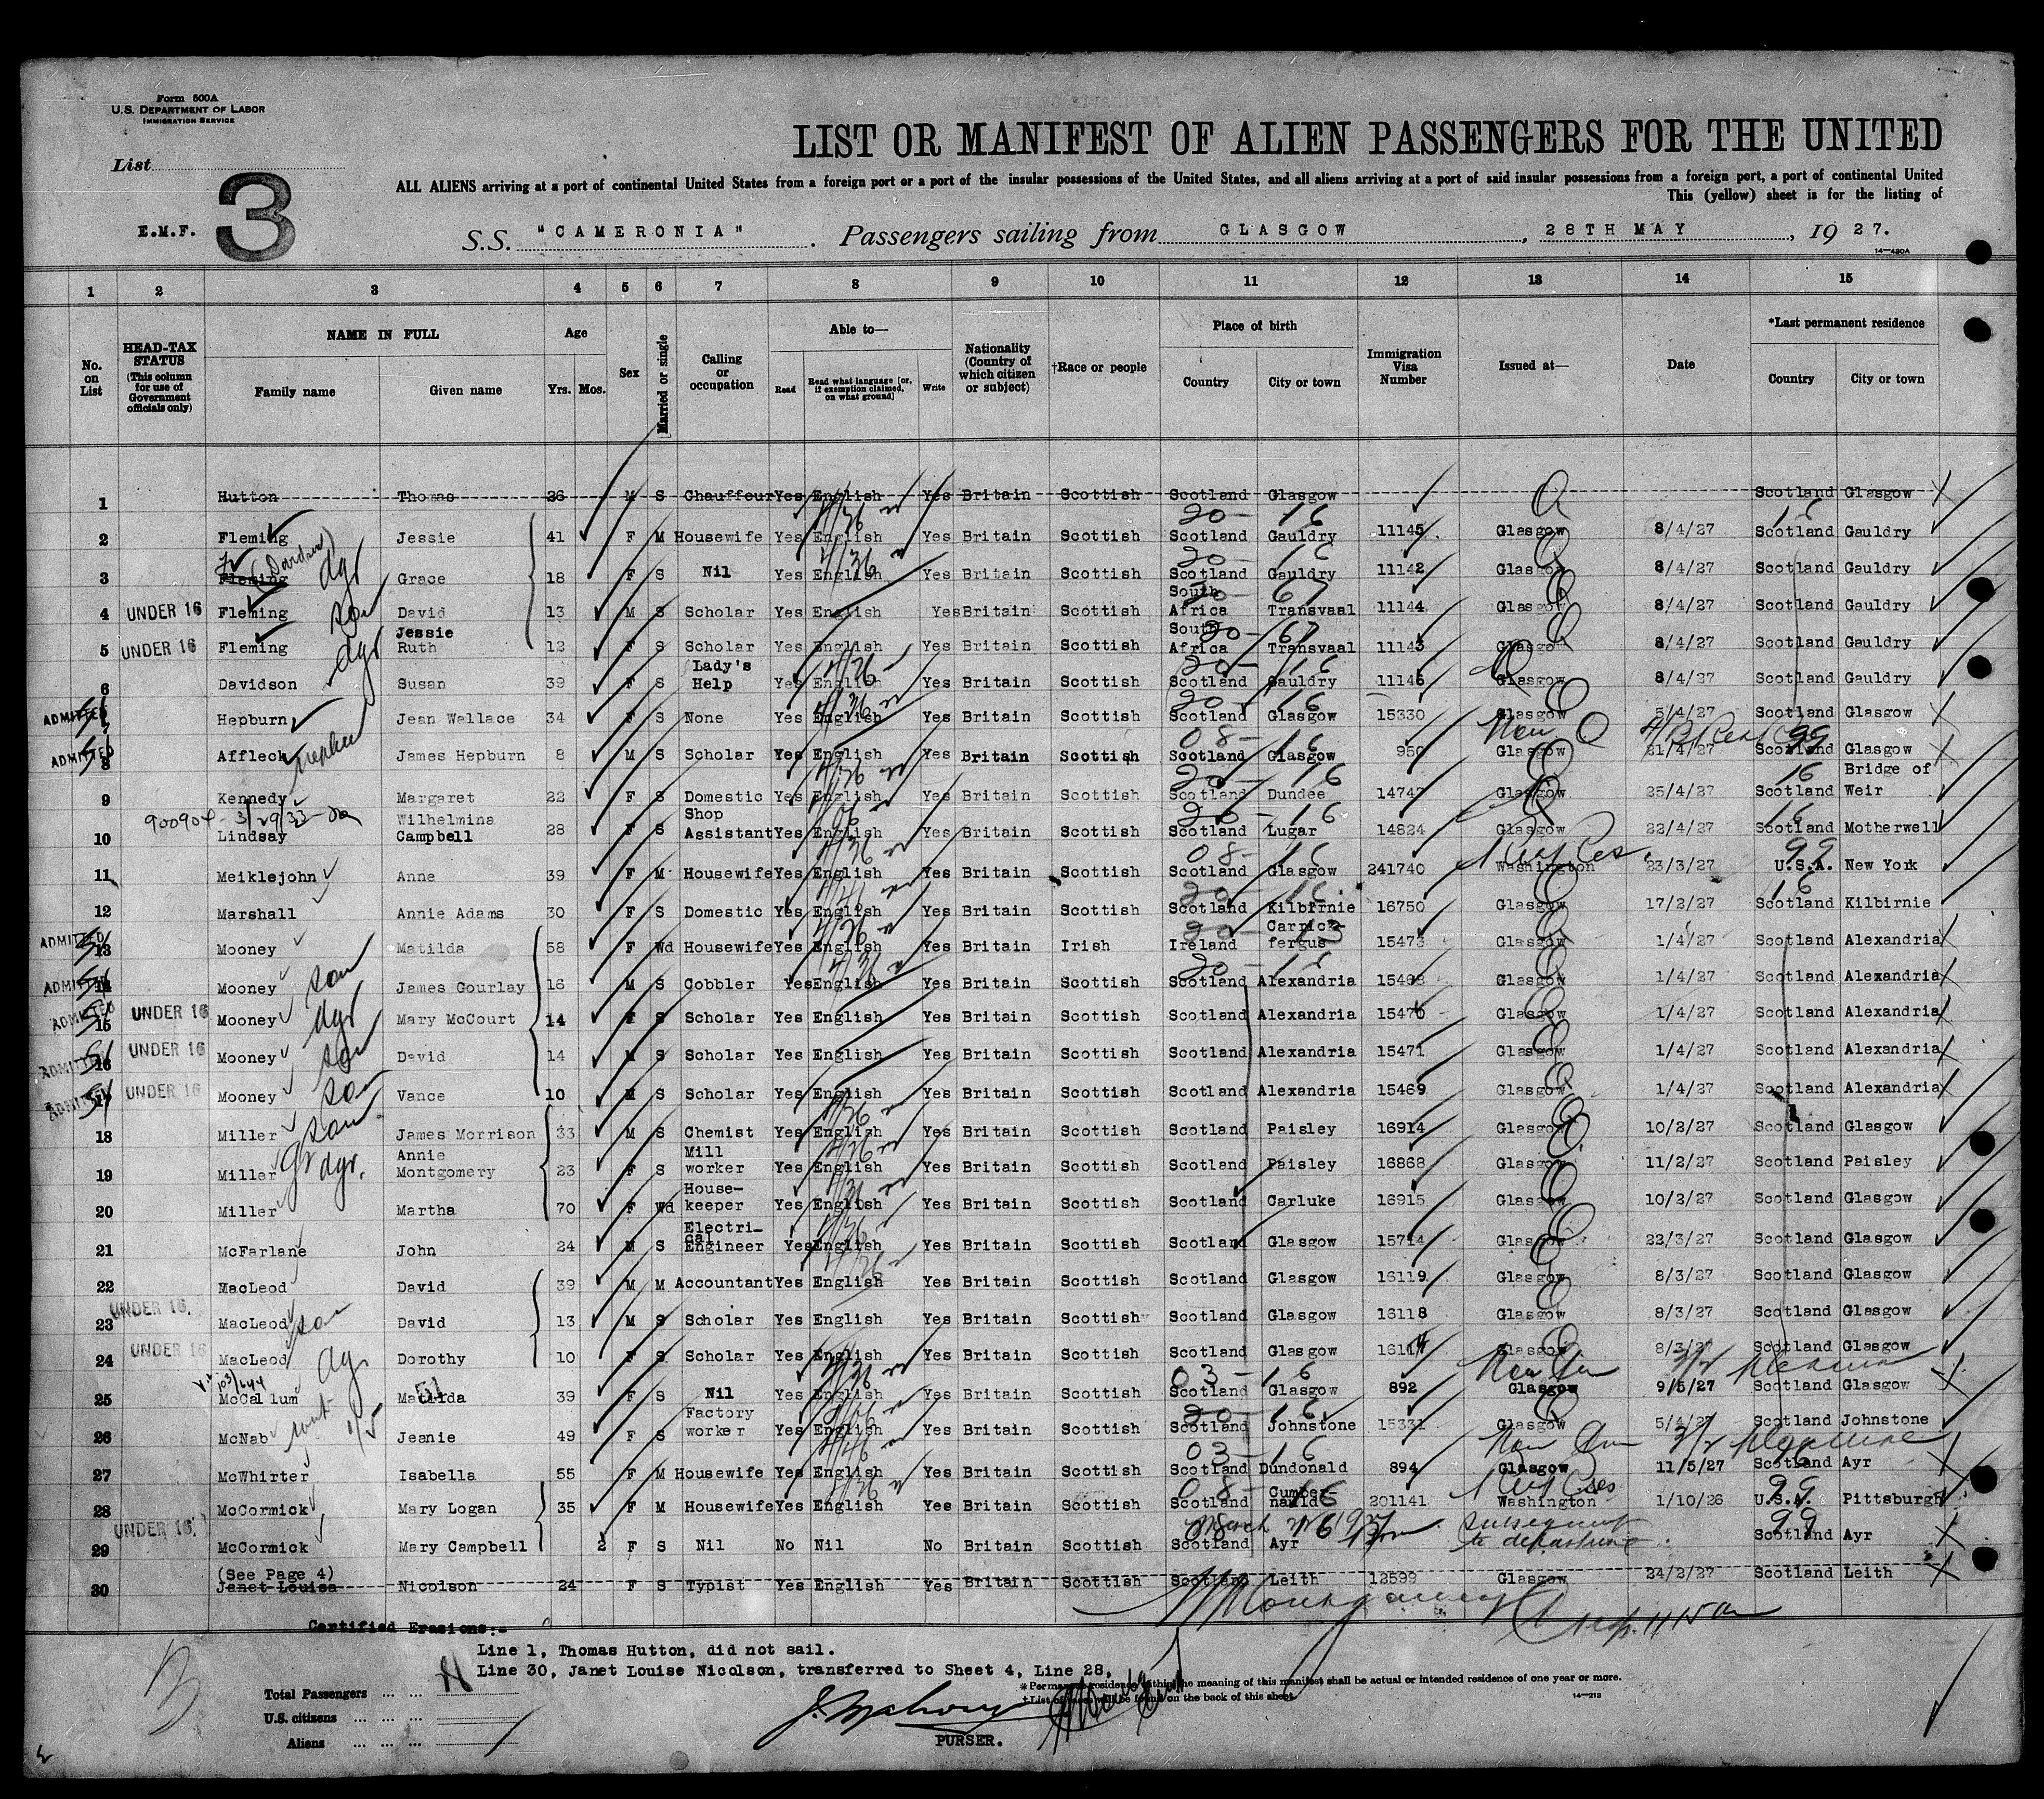 Form 500A
U.S. DEPARTMENT OF LABOR
IMMIGRATION SERVICE
List
3
E.M.F.
LIST OR MANIFEST OF ALIEN PASSENGERS FOR THE UNITED
ALL ALIENS arriving at a port of continental United States from a foreign port or a port of the insular possessions of the United States, and all aliens arriving at a port of said insular possessions from a foreign port, a port of continental United
This (yellow) sheet is for the listing of
S.S. "CAMERONIA". Passengers sailing from GLASGOW, 28TH MAY, 1927.
14—430A
1 2 3 4 5 6 7 8 9 10 11 12 13 14 15
No. on List
HEAD-TAX STATUS (This column for use of Government officials only)
NAME IN FULL
Family name Given name
Age
Yrs. Mos.
Sex
Married or single
Calling or occupation
Able to—
Read
Read what language [or, if exemption claimed, on what ground]
Write
Nationality (Country of which citizen or subject)
†Race or people
Place of birth
Country City or town
Immigration Visa Number
Issued at—
Date
*Last permanent residence
Country City or town
1 Hutton Thomas 26 M S Chauffeur Yes English Yes Britain Scottish Scotland Glasgow Scotland Glasgow
2 Fleming Jessie 41 F M Housewife Yes English Yes Britain Scottish Scotland Gauldry 11145 Glasgow 8/4/27 Scotland Gauldry
3 Fleming dgr Grace 18 F S Nil Yes English Yes Britain Scottish Scotland Gauldry 11142 Glasgow 8/4/27 Scotland Gauldry
4 UNDER 16 Fleming son David 13 M S Scholar Yes English Yes Britain Scottish South Africa Transvaal 11144 Glasgow 8/4/27 Scotland Gauldry
5 UNDER 16 Fleming dgr Jessie Ruth 12 F S Scholar Yes English Yes Britain Scottish South Africa Transvaal 11143 Glasgow 8/4/27 Scotland Gauldry
6 Davidson Susan 39 F S Lady's Help Yes English Yes Britain Scottish Scotland Gauldry 11146 Glasgow 8/4/27 Scotland Gauldry
ADMITTED 7 Hepburn Jean Wallace 34 F S None Yes English Yes Britain Scottish Scotland Glasgow 15330 Glasgow 5/4/27 Scotland Glasgow
ADMITTED 8 Affleck nephew James Hepburn 8 M S Scholar Yes English Yes Britain Scottish Scotland Glasgow 950 Glasgow 21/4/27 Scotland Glasgow
9 Kennedy Margaret 22 F S Domestic Yes English Yes Britain Scottish Scotland Dundee 14747 Glasgow 25/4/27 Scotland Bridge of Weir
10 Lindsay Wilhelmina Campbell 28 F S Shop Assistant Yes English Yes Britain Scottish Scotland Lugar 14824 Glasgow 22/4/27 Scotland Motherwell
11 Meiklejohn Anne 39 F M Housewife Yes English Yes Britain Scottish Scotland Glasgow 241740 Washington 23/3/27 U.S.A. New York
12 Marshall Annie Adams 30 F S Domestic Yes English Yes Britain Scottish Scotland Kilbirnie 16750 Glasgow 17/2/27 Scotland Kilbirnie
ADMITTED 13 Mooney Matilda 58 F Wd Housewife Yes English Yes Britain Irish Ireland Carrickfergus 15473 Glasgow 1/4/27 Scotland Alexandria
ADMITTED 14 Mooney son James Gourlay 16 M S Cobbler Yes English Yes Britain Scottish Scotland Alexandria 15468 Glasgow 1/4/27 Scotland Alexandria
ADMITTED 15 UNDER 16 Mooney dgr Mary McCourt 14 F S Scholar Yes English Yes Britain Scottish Scotland Alexandria 15470 Glasgow 1/4/27 Scotland Alexandria
ADMITTED 16 UNDER 16 Mooney son David 14 M S Scholar Yes English Yes Britain Scottish Scotland Alexandria 15471 Glasgow 1/4/27 Scotland Alexandria
ADMITTED 17 UNDER 16 Mooney son Vance 10 M S Scholar Yes English Yes Britain Scottish Scotland Alexandria 15469 Glasgow 1/4/27 Scotland Alexandria
18 Miller son James Morrison 33 M S Chemist Yes English Yes Britain Scottish Scotland Paisley 16914 Glasgow 10/2/27 Scotland Glasgow
19 Miller gr dgr. Annie Montgomery 23 F S Mill worker Yes English Yes Britain Scottish Scotland Paisley 16868 Glasgow 11/2/27 Scotland Paisley
20 Miller Martha 70 F Wd House-keeper Yes English Yes Britain Scottish Scotland Carluke 16915 Glasgow 10/2/27 Scotland Glasgow
21 McFarlane John 24 M S Electrical Engineer Yes English Yes Britain Scottish Scotland Glasgow 15714 Glasgow 22/3/27 Scotland Glasgow
22 MacLeod David 39 M M Accountant Yes English Yes Britain Scottish Scotland Glasgow 16119 Glasgow 8/3/27 Scotland Glasgow
23 UNDER 16. MacLeod son David 13 M S Scholar Yes English Yes Britain Scottish Scotland Glasgow 16118 Glasgow 8/3/27 Scotland Glasgow
24 UNDER 16 MacLeod Dorothy 10 F S Scholar Yes English Yes Britain Scottish Scotland Glasgow 16117 Glasgow 8/3/27 Scotland Glasgow
25 McCallum Matilda 39 F S Nil Yes English Yes Britain Scottish Scotland Glasgow 892 Glasgow 9/5/27 Scotland Glasgow
26 McNab Jeanie 49 F S Factory worker Yes English Yes Britain Scottish Scotland Johnstone 15331 Glasgow 5/4/27 Scotland Johnstone
27 McWhirter Isabella 55 F M Housewife Yes English Yes Britain Scottish Scotland Dundonald 894 Glasgow 11/5/27 Scotland Ayr
28 McCormick Mary Logan 35 F M Housewife Yes English Yes Britain Scottish Scotland Cumbernauld 201141 Washington 1/10/26 U.S.A. Pittsburgh
29 UNDER 16. McCormick Mary Campbell 2 F S Nil No Nil No Britain Scottish Scotland Ayr subsequent to departure Scotland Ayr
(See Page 4)
30 Janet Louisa Nicolson 24 F S Typist Yes English Yes Britain Scottish Scotland Leith 12599 Glasgow 24/2/27 Scotland Leith
Certified Erasions:-
Line 1, Thomas Hutton, did not sail.
Line 30, Janet Louise Nicolson, transferred to Sheet 4, Line 28,
*Permanent residence within the meaning of this manifest shall be actual or intended residence of one year or more.
†List of races will be found on the back of this sheet.
14—213
Total Passengers
U.S. citizens
Aliens
PURSER.